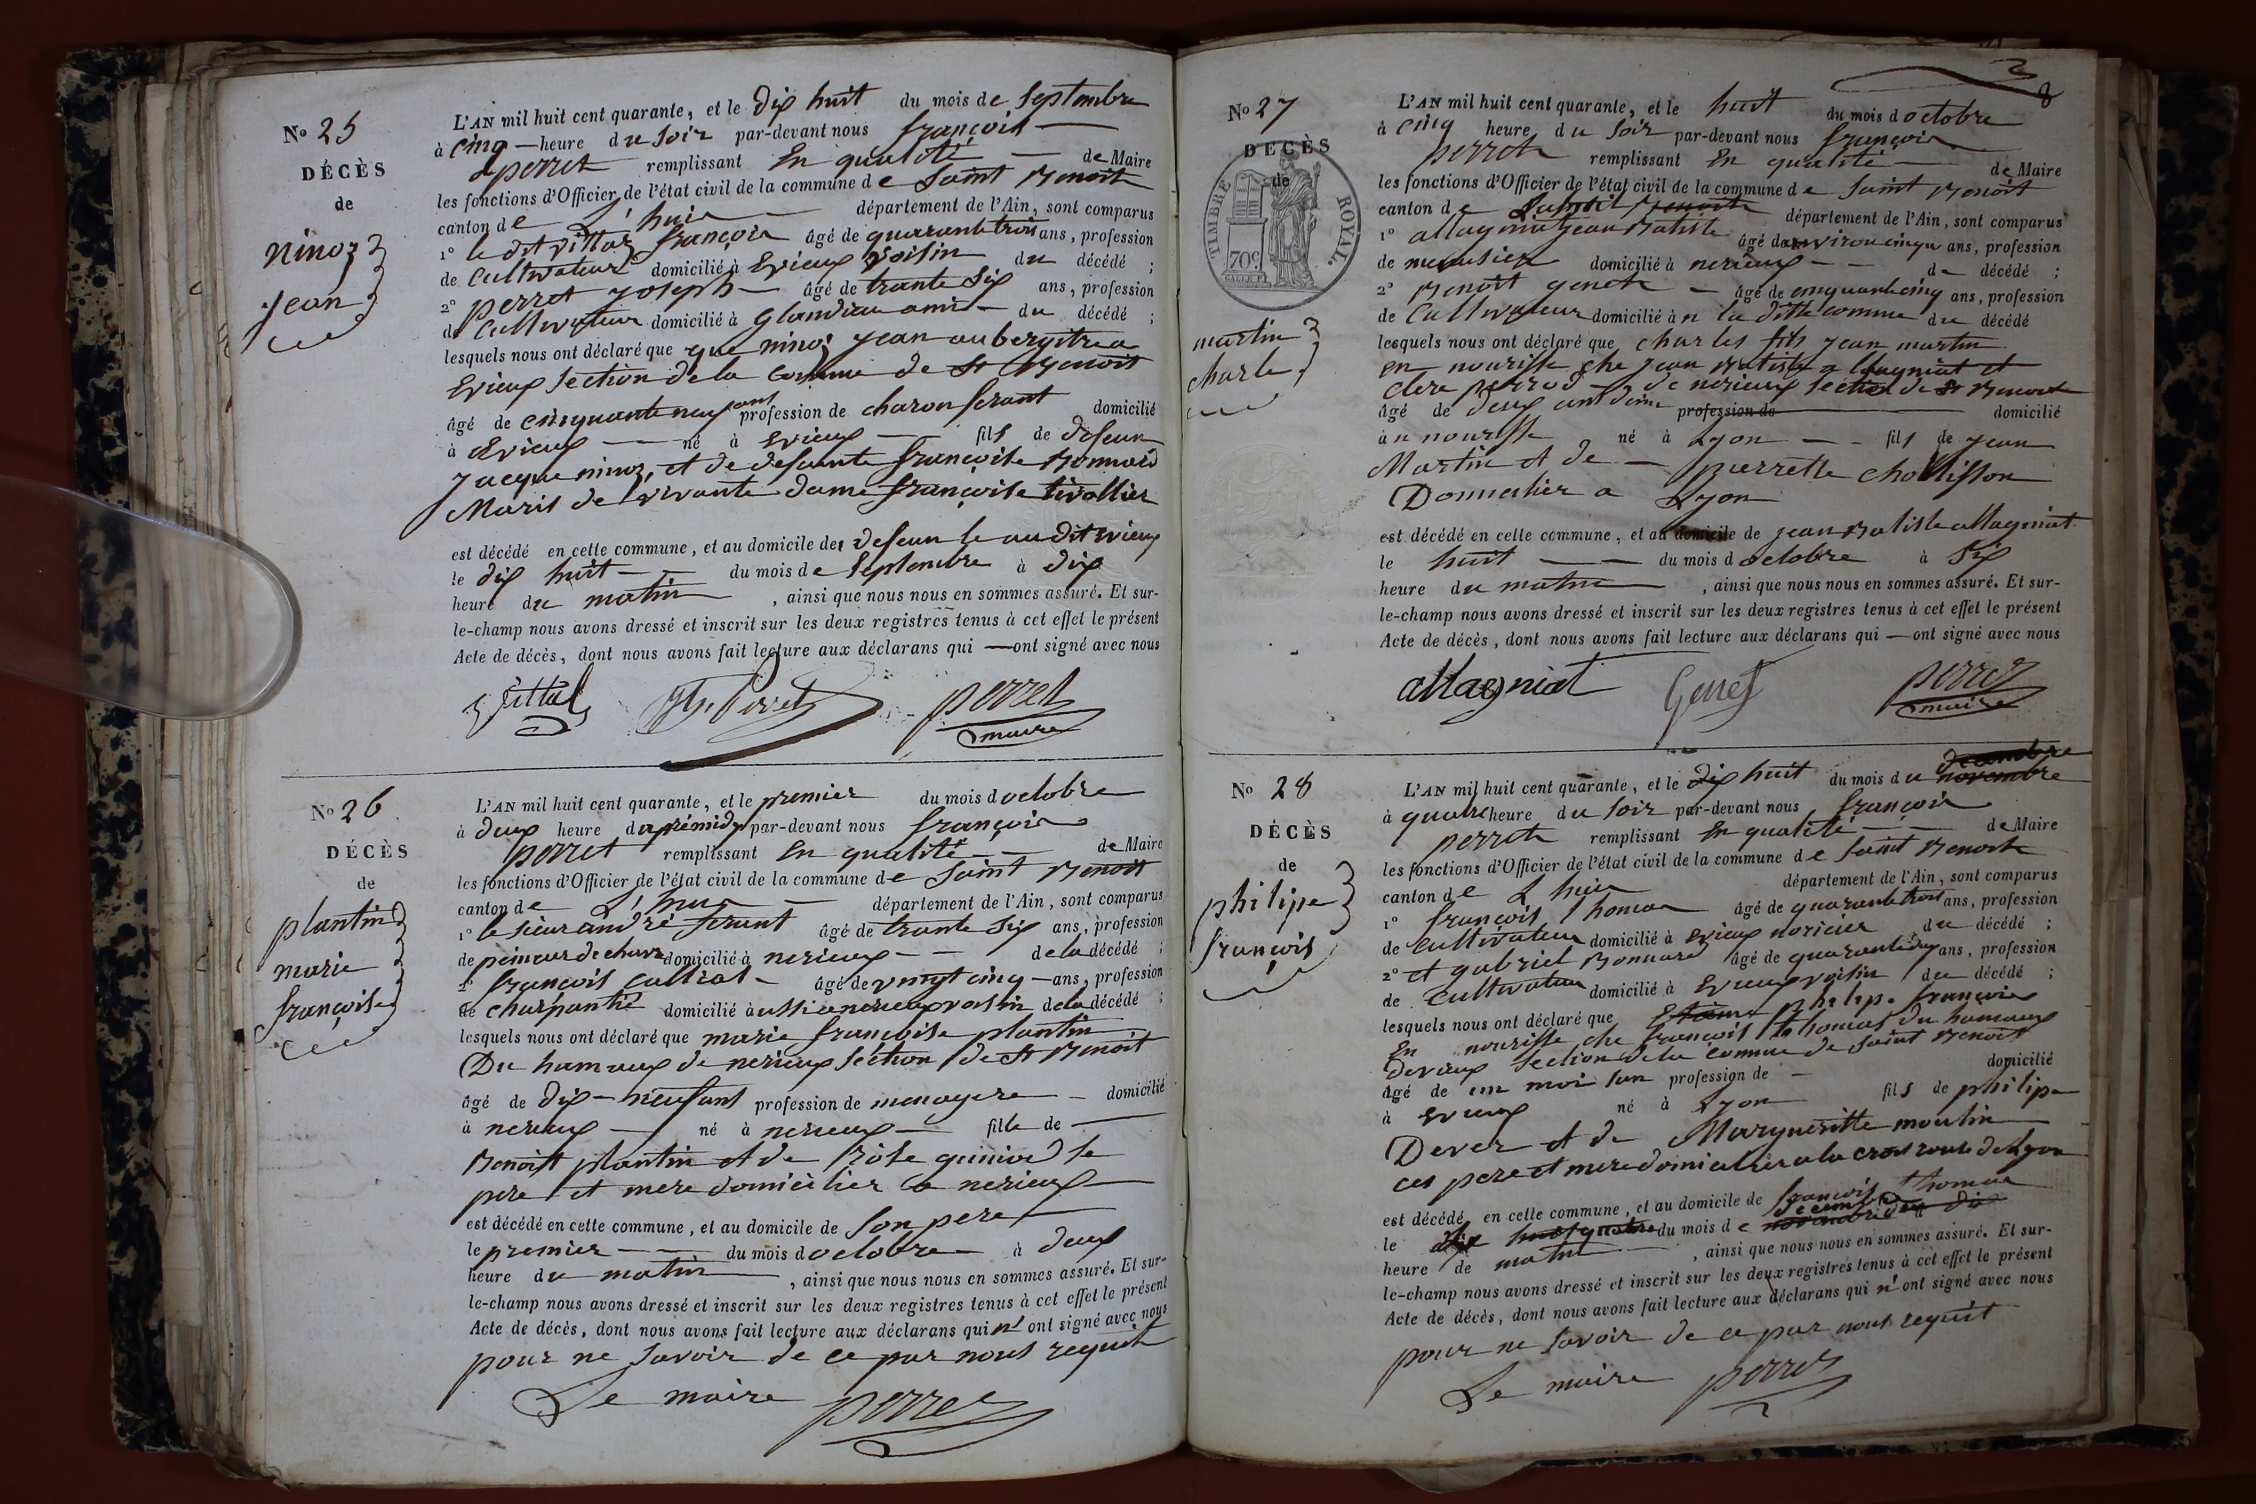 N° 25
DÉCÈS
de
ninoz
jean
L'AN mil huit cent quarante, et le dix huit du mois de Septembre
à cinq heure du Soir par-devant nous françois
perret remplissant En qualité de Maire
les fonctions d'Officier de l'état civil de la commune de Saint Benoit
canton de L'huis département de l'Ain, sont comparus
1° le dit vittoz françois âgé de quarante trois ans, profession
de Cultivateur domicilié à Evieux voisin du décédé ;
2° perret joseph âgé de trante Six ans, profession
de Cultivateur domicilié à glandieu ami du décédé ;
lesquels nous ont déclaré que que ninoz jean aubergitre a
Evieux Section de la Comune de St Benoit
âgé de cinquante neuf ans profession de charon ferant domicilié
à Evieux né à Evieux fils de defeun
jacque ninoz et de defunte françoise Bonnard
Maris de vivante dame françoise tivollier
est décédé en cette commune, et au domicile de defeun le au dit Evieux
le dix huit du mois de Septembre à dix
heure du matin , ainsi que nous nous en sommes assuré. Et sur-
le-champ nous avons dressé et inscrit sur les deux registres tenus à cet effet le présent
Acte de décès, dont nous avons fait lecture aux déclarans qui ont signé avec nous
perret
maire
N° 26
DÉCÈS
de
plantin
marie
françoise
L'AN mil huit cent quarante, et le premier du mois d octobre
à deux heure d aprémidy par-devant nous françois
perret remplissant En qualité de Maire
les fonctions d'Officier de l'état civil de la commune de Saint Benoit
canton de L'huis département de l'Ain, sont comparus
1° le Sieur andré ferant âgé de trante Six ans, profession
de domicilié à nerieux de la décédé ;
2° françois âgé de vingt cinq ans, profession
de charpantié domicilié à aussi a nerieux voisin de la décédé ;
lesquels nous ont déclaré que marie françoise plantin
Du hamaux de nerieux Section de St Benoit
âgé de dix neuf ans profession de menagere domicilié
à nerieux né à nerieux fille de
Benoit plantin et de Rose le
pere et mere domicilier a nerieux
est décédé en cette commune, et au domicile de Son pere
le premier du mois d octobre à deux
heure du matin , ainsi que nous nous en sommes assuré. Et sur-
le-champ nous avons dressé et inscrit sur les deux registres tenus à cet effet le présent
Acte de décès, dont nous avons fait lecture aux déclarans qui n' ont signé avec nous
pour ne Savoir de ce par nous requit
Le maire perret
8
N° 27
DÉCÈS
de
TIMBRE ROYAL.
70c
martin
charle
L'AN mil huit cent quarante, et le huit du mois d octobre
à cinq heure du Soir par-devant nous françois
perret remplissant En qualité de Maire
les fonctions d'Officier de l'état civil de la commune de Saint Benoit
canton de Saint Benoit département de l'Ain, sont comparus
1° allagniat jean Batiste âgé de ans, profession
de menusier domicilié à nerieux du décédé ;
2° Benoit genet âgé de cinquante cinq ans, profession
de Cultivateur domicilié à n la ditte comune du décédé
lesquels nous ont déclaré que charles fils jean martin
en nourisse che jean Batiste allagniat et
de nerieux Section de St Benoit
âgé de deux ans profession de domicilié
à n nourisse né à Lyon fils de jean
Martin et de pierrette
Domicilier a Lyon
est décédé en cette commune, et au domicile de jean Batiste allagniat
le huit du mois d octobre à Six
heure du matin , ainsi que nous nous en sommes assuré. Et sur-
le-champ nous avons dressé et inscrit sur les deux registres tenus à cet effet le présent
Acte de décès, dont nous avons fait lecture aux déclarans qui ont signé avec nous
allagniat Genet perret
maire
N° 28
DÉCÈS
de
philipe
françois
L'AN mil huit cent quarante, et le dix huit du mois du decembre novembre
à quatre heure du Soir par-devant nous françois
perret remplissant En qualité de Maire
les fonctions d'Officier de l'état civil de la commune de Saint Benoit
canton de L'huis département de l'Ain, sont comparus
1° françois thomas âgé de quarante trois ans, profession
de Cultivateur domicilié à Evieux noricier du décédé ;
2° et gabriel Bonnard âgé de quarante deux ans, profession
de Cultivateur domicilié à Evieux voisin du décédé ;
lesquels nous ont déclaré que philipe françois
En nourisse che françois thomas du hamaux
Devieux Section de la Comune de Saint Benoit
âgé de un moi profession de domicilié
à Evieux né à Lyon fils de philipe
Dever et de Margueritte moulin
ces pere et mere domicilier a la croix rouse de Lyon
est décédé en cette commune, et au domicile de françois thomas
le dix huit du mois de decembre novembre
heure de matin , ainsi que nous nous en sommes assuré. Et sur-
le-champ nous avons dressé et inscrit sur les deux registres tenus à cet effet le présent
Acte de décès, dont nous avons fait lecture aux déclarans qui n' ont signé avec nous
pour ne Savoir de ce par nous requit
Le maire perret